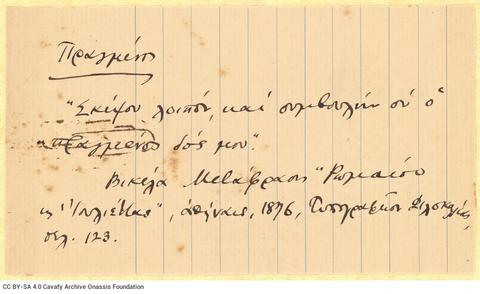 Πραγμένος
"Σκέψου λοιπόν, και συμβουλήν συ ο
πραγμένος δός μου".
Βικέλα Μετάφρασις "Ρωμαίου
κ' Ιουλιέττας", Αθήναις, 1876, Τυπογραφείον Φιλοκαλίας,
σελ. 123.
CC BY-SA 4.0 Cavafy Archive Onassis Foundation